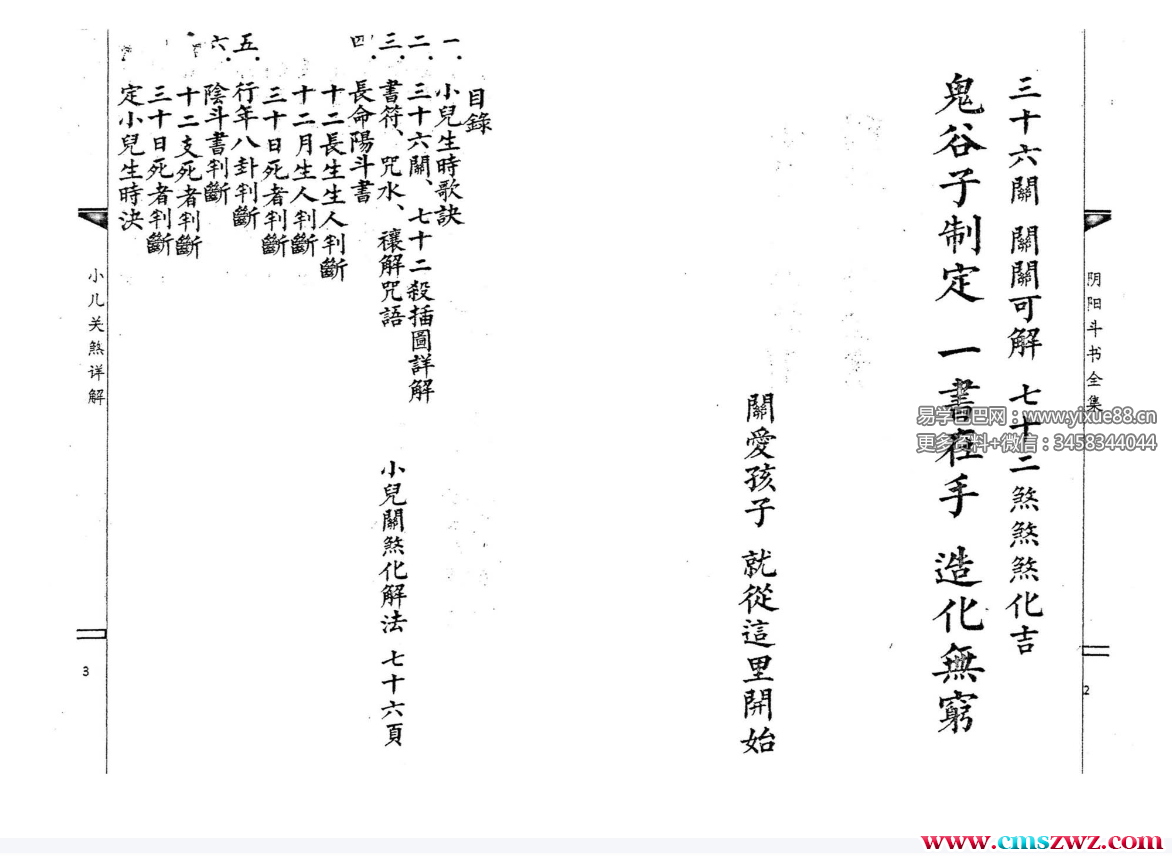 阴阳斗书全集
2
三十六關 關關可解 七十二煞煞煞化吉
鬼谷子制定 一書在手 造化無窮
關愛孩子 就從這里開始
易学巴巴网：www.yixue88.cn
更多资料+微信：3458344044
目錄
一.小兒生時歌訣
二.三十六關、七十二殺插圖詳解
三.書符、咒水、禳解咒語
小兒關煞化解法 七十六頁
四.長命陽斗書
十二長生生人判斷
十二月生人判斷
三十日死者判斷
五.行年八卦判斷
六.陰斗書判斷
十二支死者判斷
三十日死者判斷
定小兒生時決
小儿关煞详解
3
www.cmszwz.com